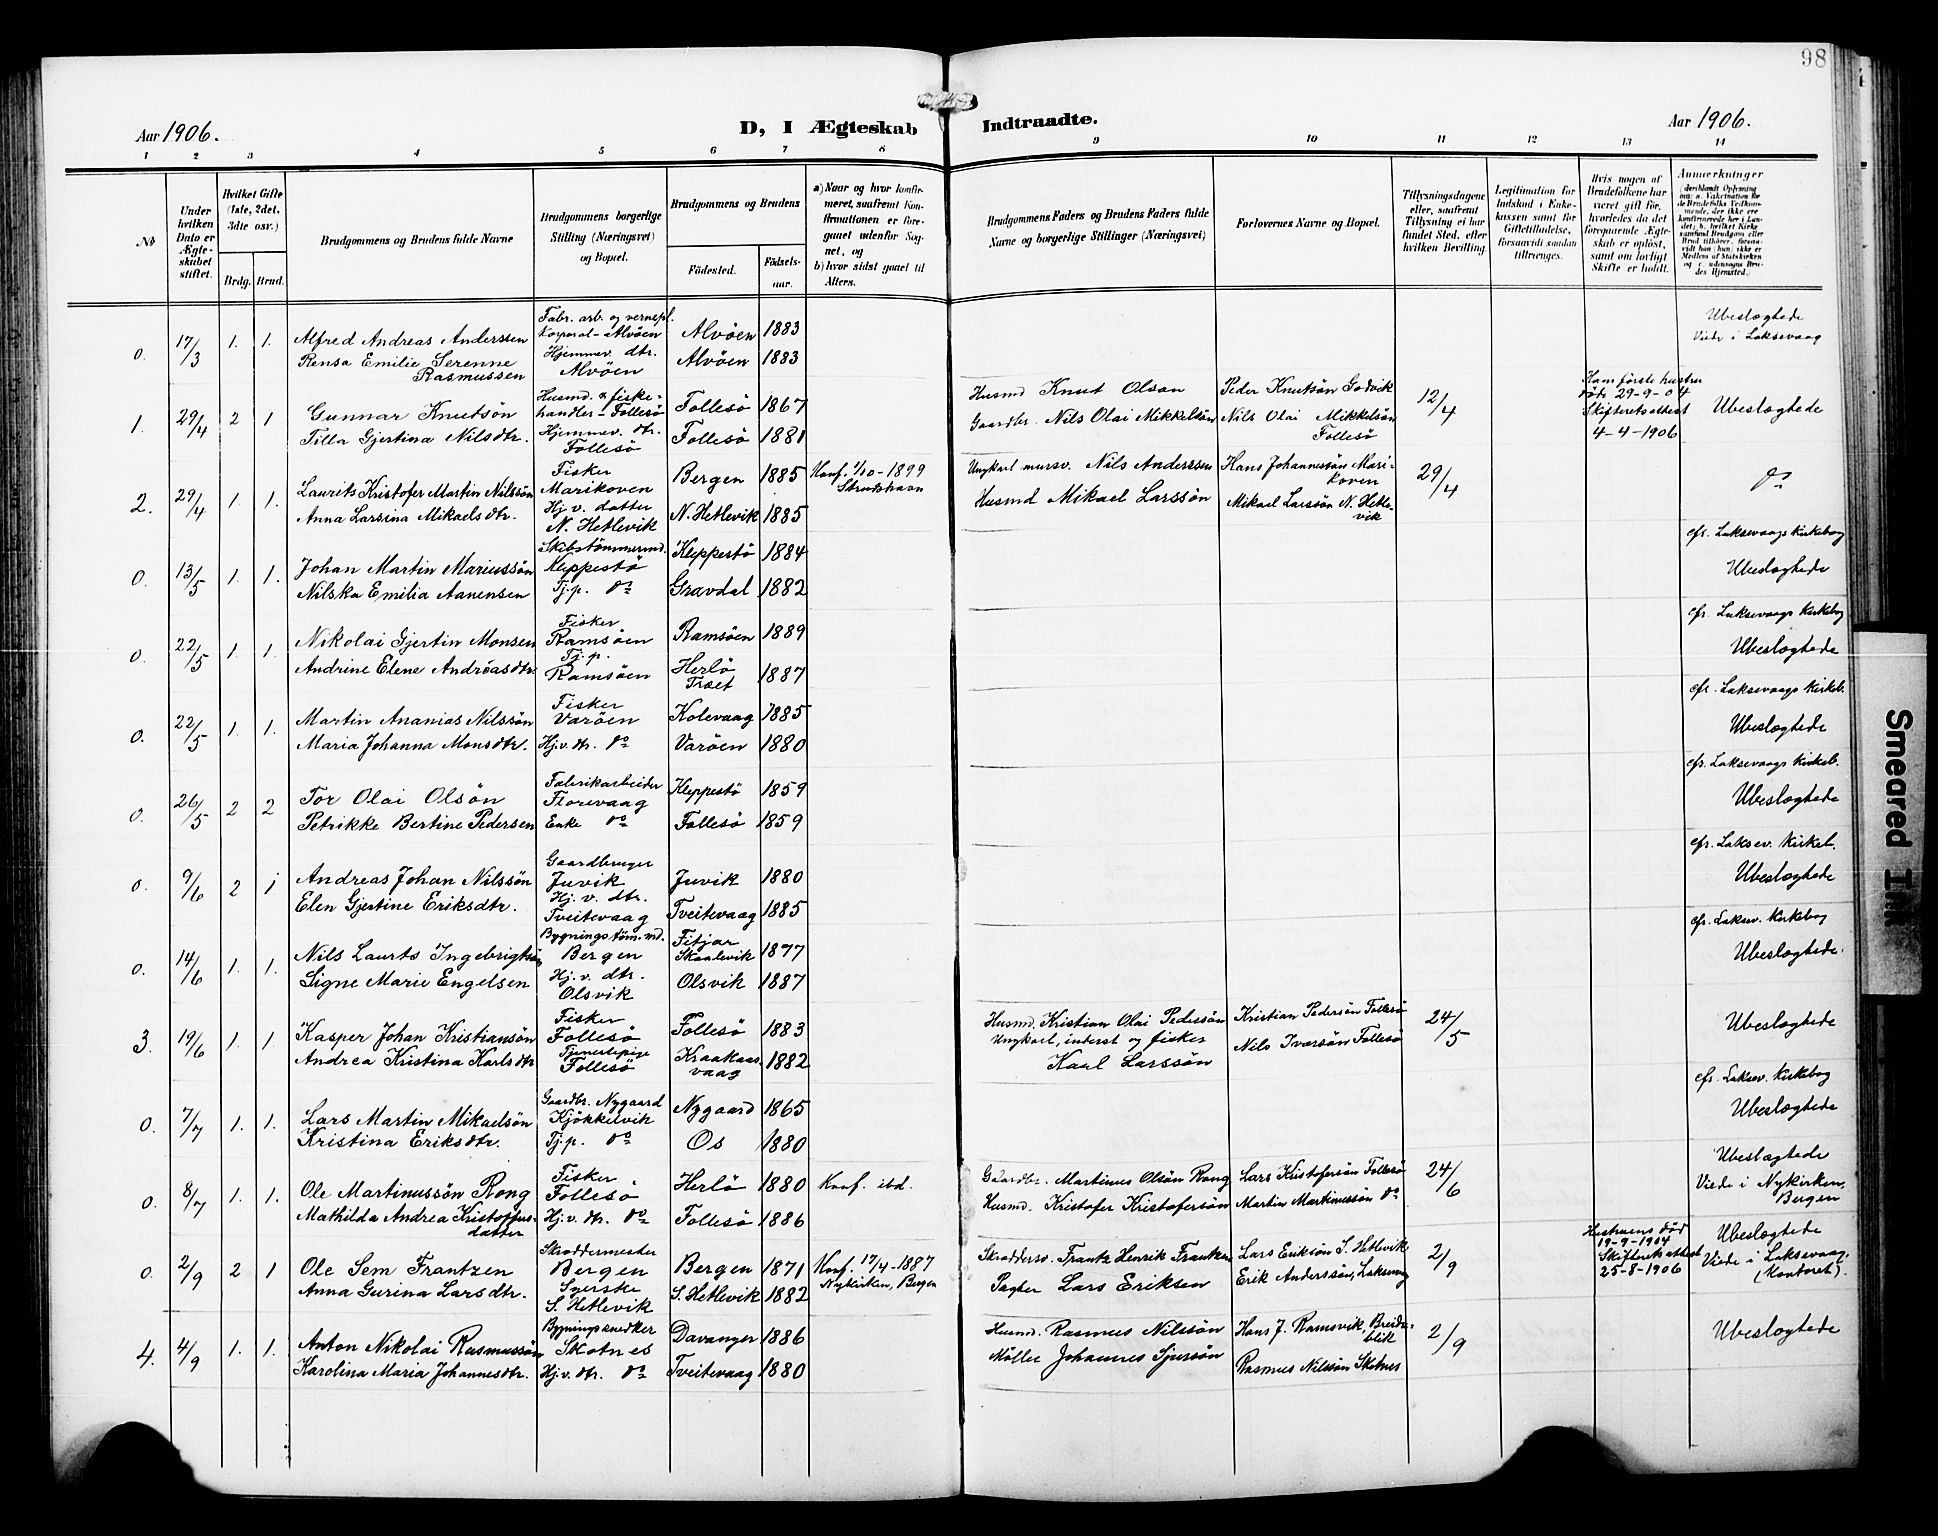 98
Aar 1906.
D, I Ægteskab Indtraadte.
Aar 1906.
1 2 3 4 5 6 7 8 9 10 11 12 13 14
No
Under hvilken Dato er Ægteskabet stiftet.
Hvilket Gifte (1ste, 2det, 3dte osv.)
Brdg. Brud.
Brudgommens og Brudens fulde Navne
Brudgommens borgerlige Stilling (Næringsvei) og Bopæl.
Brudgommens og Brudens
Fødested.
Fødselsaar.
a) Naar og hvor konfirmeret, saafremt Konfirmationen er foregaaet udenfor Sognet, og
b) hvor sidst gaaet til Alters.
Brudgommens Faders og Brudens Faders fulde Navne og borgerlige Stillinger (Næringsvei)
Forlovernes Navne og Bopæl.
Tillysningsdagene eller, saafremt Tillysning ei har fundet Sted, efter hvilken Bevilling.
Legitimation for Indskud i Enkekassen samt for Giftetilladelse, forsaavidt saadan tiltrænges.
Hvis nogen af Brudefolkene har været gift før, hvorledes da det foregaaende Ægteskab er opløst, samt om lovligt Skifte er holdt.
Anmærkninger
(deriblandt Oplysning om: a. Vakcination for de Brudefolks Vedkommende, der ikke ere konfirmerede her i Landet; b. hvilket Kirkesamfund Brudgom eller Brud tilhører, forsaavidt han (hun) ikke er Medlem af Statskirken og c. udensogns Brudes Hjemsted.)
0. 17/3 1. 1. Alfred Andreas Anderssen
Rensa Emilie Serenne Rasmussen
Fabr. arb. og vernepl. Korporal - Alvøen
Hjemmev. dtr. Alvøen
Alvöen 1883
Alvöen 1883
Ubeslægtede
Viede i Laksevaag
1. 29/4 2 1 Gunnar Knutsön
Tilla Gjertina Nilsdtr.
Husmd. & fiskehandler - Follesö
Hjemmev. dtr. Follesö
Follesö 1867
Follesö 1881
Husmd Knut Olsan
Gaardbr. Nils Olai Mikkelsön
Peder Knutsön Godvik
Nils Olai Mikkelsön Follesö
12/4
Hans första hustru döde 29-9-04
Skifteretsattest 4-4-1906
Ubeslægtede
2. 29/4 1. 1. Laurits Kristofer Martin Nilssön
Anna Larsina Mikaelsdtr.
Fisker Marikoven
Hj. v. datter N. Hetlevik
Bergen 1885
N. Hetlevik 1885
Konf. 1/10-1899 Strudshavn
Ungkarl mursv. Nils Anderssen
Husmd Mikael Larssön
Hans Johannessön Marikoven
Mikael Larssön N. Hetlevik
29/4
do
0. 13/5 1. 1. Johan Martin Mariussön
Nilska Emilia Aanensen
Skibstömmermd. Kleppestö
Tj.p. do
Kleppestö 1884
Gravdal 1882
cfr. Laksevaags Kirkebog
Ubeslægtede
0. 22/5 1. 1. Nikolai Gjertin Monsen
Andrine Elene Andréasdtr.
Fisker Ramsöen
Tj. p. Ramsöen
Ramsöen 1889
Herlö Træet 1887
cfr. Laksevaags Kirkebog
Ubeslægtede
0. 22/5 1. 1. Martin Ananias Nilssön
Maria Johanna Monsdtr.
Fisker Varöen
Hj.v. dtr. do
Kolevaag 1885
Varöen 1880
cfr. Laksevaags Kirkeb.
Ubeslægtede
0. 26/5 2 2 Tor Olai Olsön
Petrikke Bertine Pedersen
Fabrikarbeider Florevaag
Enke do
Kleppestö 1859
Follesö 1859
cfr. Laksevaags Kirkeb.
Ubeslægtede
0. 9/6 2 1 Andreas Johan Nilssön
Elen Gjertine Eriksdtr.
Gaardbruger Juvik
Hj. v. dtr. Tveitevaag
Juvik 1880
Tveitevaag 1885
cfr. Laksev. Kirkeb.
Ubeslægtede
0. 14/6 1. 1. Nils Laurts Ingebrigtsön
Signe Marie Engelsen
Bygningstöm.md. Bergen
Hj. v. dtr. Olsvik
Fitjar Skaalevik 1877
Olsvik 1887
cfr. Laksev. Kirkebog
Ubeslægtede
3. 19/6 1. 1. Kasper Johan Kristiansön
Andrea Kristina Karlsdtr
Fisker Follesö
Tjenestepige Follesö
Follesö 1883
Kraakaasvaag 1882
Husmd. Kristian Olai Pedersön
Ungkarl, inderst og fisker Karl Larssön
Kristian Pedersön Follesö
Nils Ivarsön Follesö
24/5
Ubeslægtede
0. 7/7 1. 1. Lars Martin Mikaelsön
Kristina Eriksdtr.
Gaardbr. Nygaard Kjökkelvik
Tj.p. do
Nygaard 1865
Os 1880
cfr. Laksev. Kirkebog
Ubeslægtede
0. 8/7 1. 1. Ole Martinussön Rong
Mathilda Andrea Kristoffersdatter
Fisker Follesö
Hj.v. dtr. do
Herlö 1880
Follesö 1886
Konf. ibd.
Gaardbr. Martinus Olsön Rong
Husmd. Kristofer Kristofersön
Lars Kristofersön Follesö
Martin Martinussön do
24/6
Ubeslægtede
Viede i Nykirken, Bergen
0. 2/9 2 1 Ole Sem Frantzen
Anna Gurina Larsdtr.
Skræddermester Bergen
Syerske S. Hetlevik
Bergen 1871
S. Hetlevik 1882
Konf. 17/4-1887 Nykirken, Bergen
Skræddersv. Frantz Henrik Frantzen
Pagter Lars Eriksen
Lars Eriksön S. Hetlevik
Erik Anderssön, Laksevaag
2/9
Hustruens död 19-9-1904
Skifteretsattest 25-8-1906
Ubeslægtede
Viede i Laksevaag. (Kontoret).
4. 4/9 1. 1. Anton Nikolai Rasmussön
Karolina Maria Johannesdtr.
Bygningssnedker Skotnes
Hj.v. dtr. do
Davanger 1886
Tveitevaag 1880
Husmd. Rasmus Nilssön
Møller Johannes Sjursön
Hans J. Ramsvik, Breidablik
Rasmus Nilssön Skotnes
2/9
Ubeslægtede
Smeared Ink